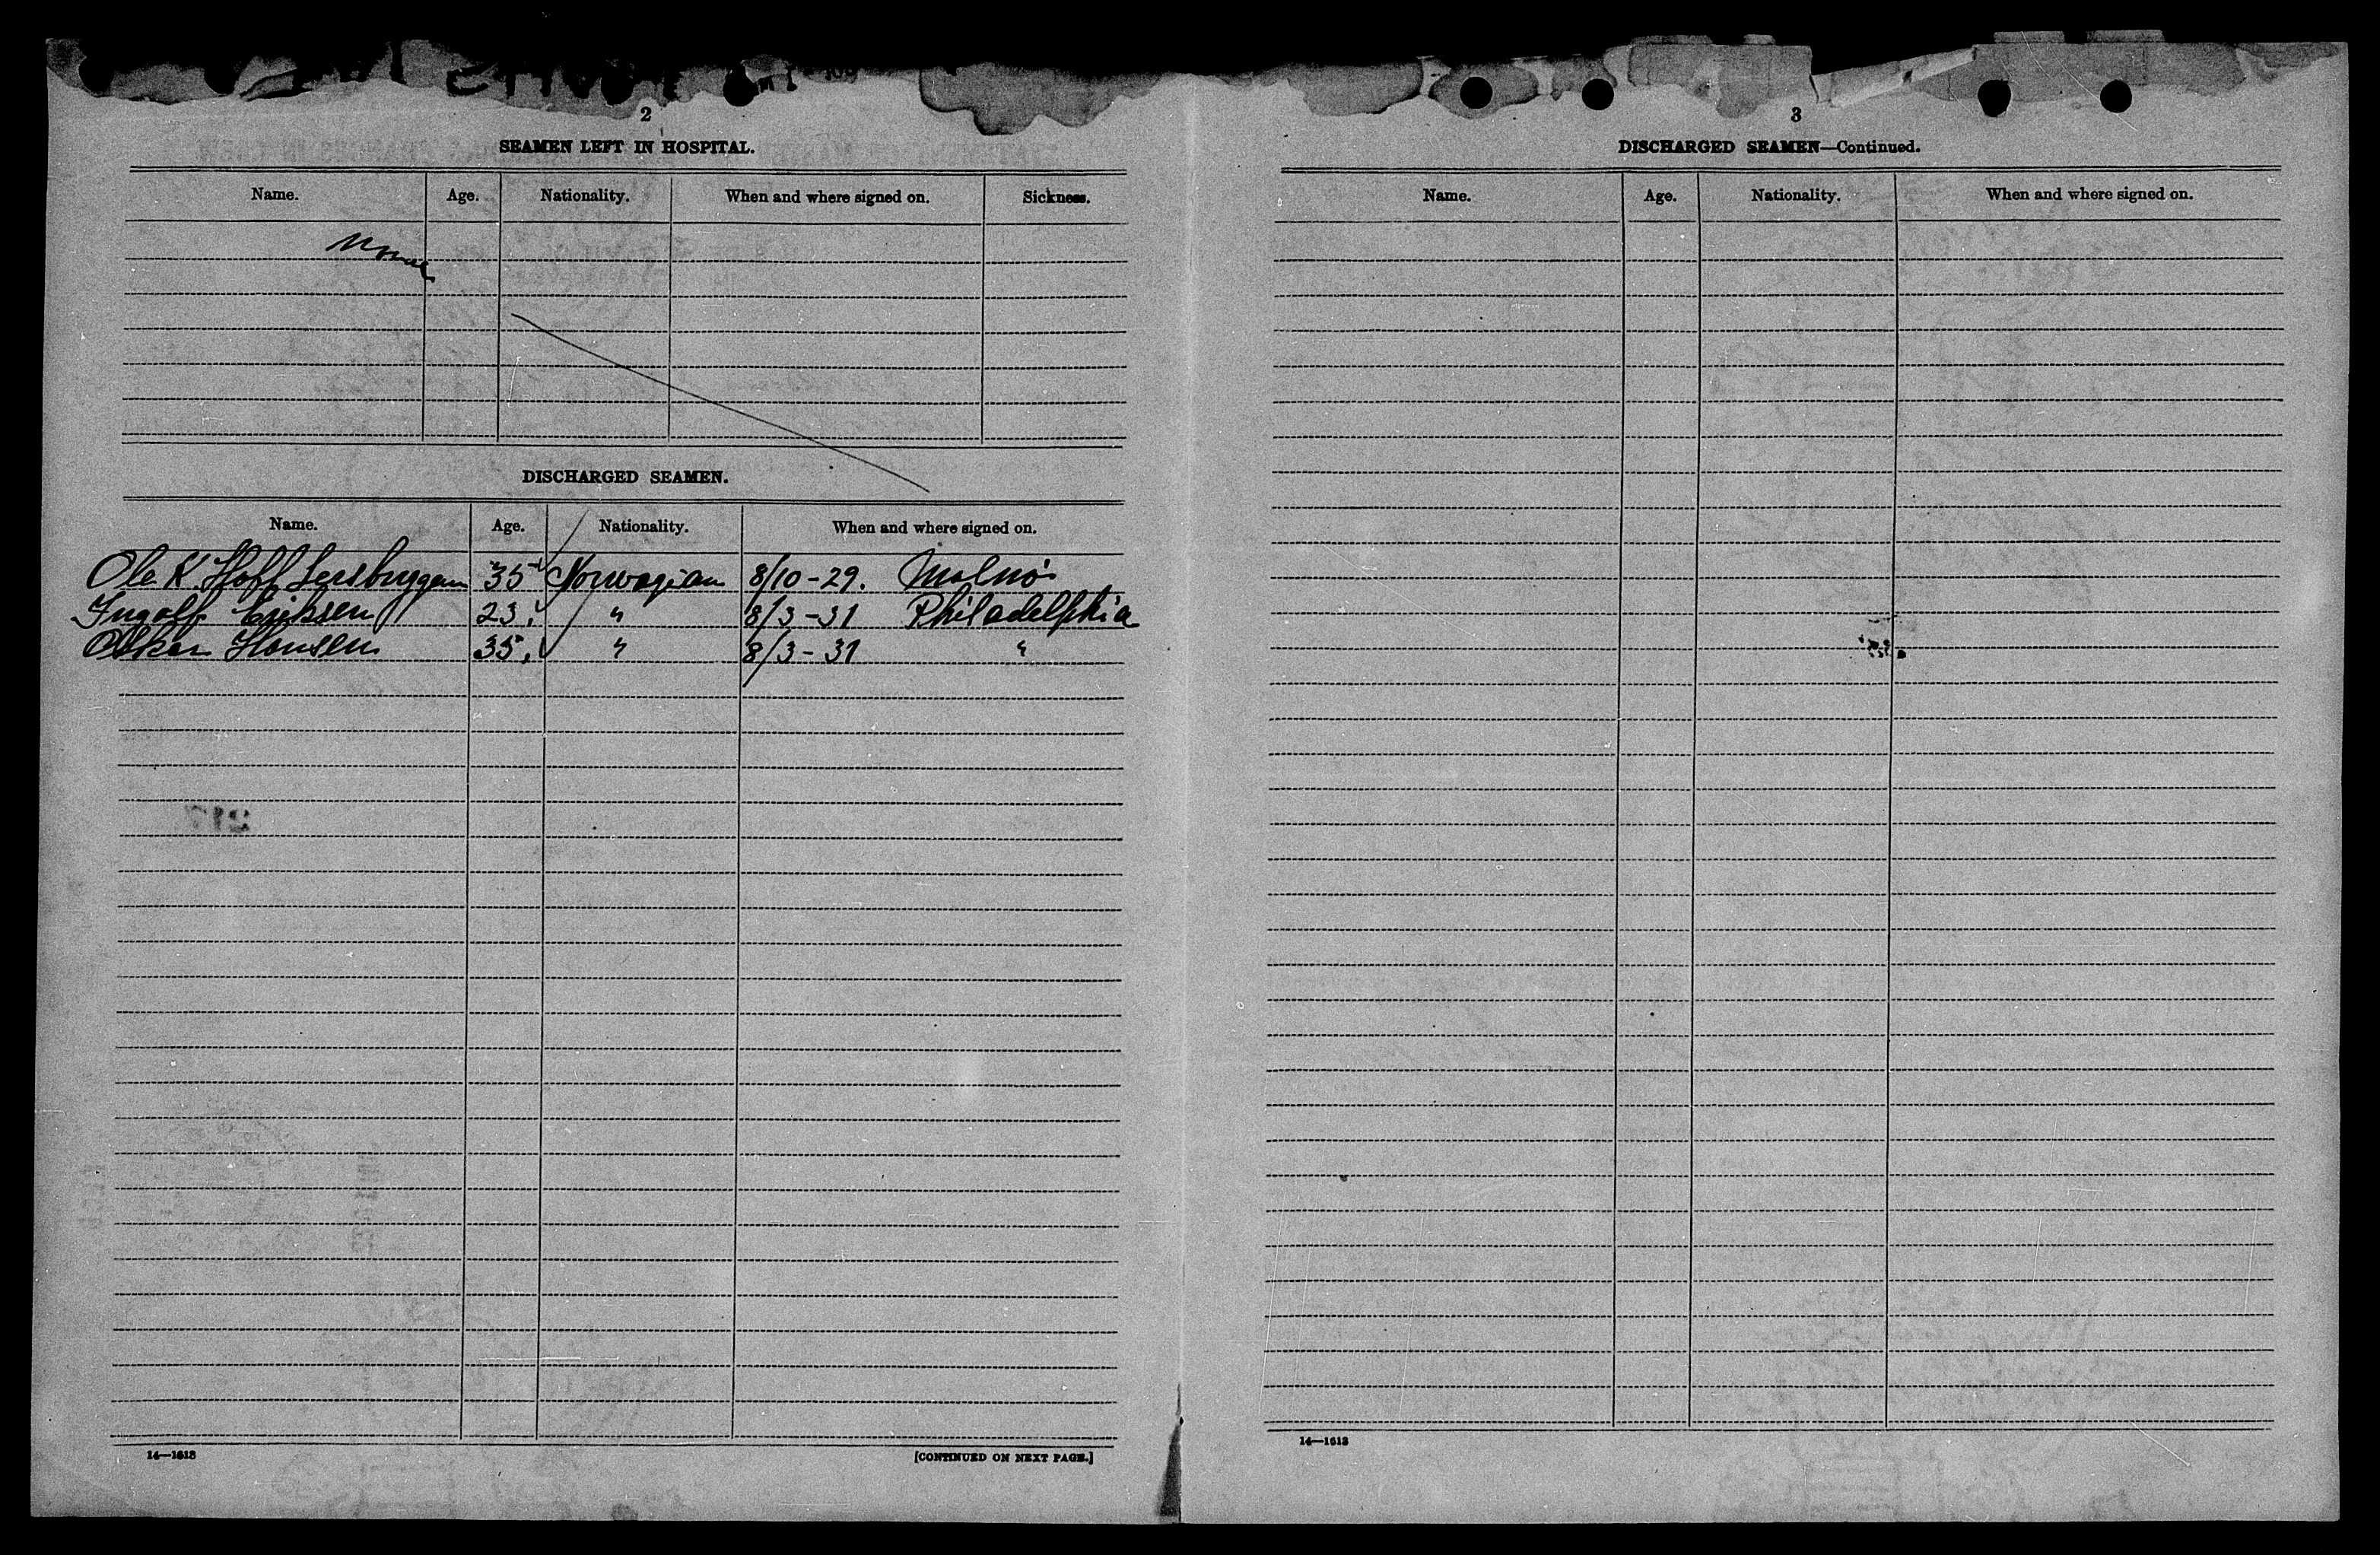 2
SEAMEN LEFT IN HOSPITAL.
Name. Age. Nationality. When and where signed on. Sickness.
None
DISCHARGED SEAMEN.
Name. Age. Nationality. When and where signed on.
Ole K. Hoff 35 Norwegian 8/10-29. Malmö
Ingolf Eriksen 23 " 8/3-31 Philadelphia
Oskar Hansen 35 " 8/3-31 "
14—1613
[CONTINUED ON NEXT PAGE.]
3
DISCHARGED SEAMEN—Continued.
Name. Age. Nationality. When and where signed on.
14—1613